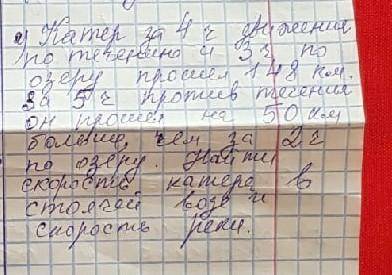 Катер за 4 ч движения
по течению и 3 ч по
озеру прошел 148 км.
За 5 ч против течения
он прошел на 50 км
больше, чем за 2 ч
по озеру. Найти
скорость катера в
стоячей воде и
скорость реки.